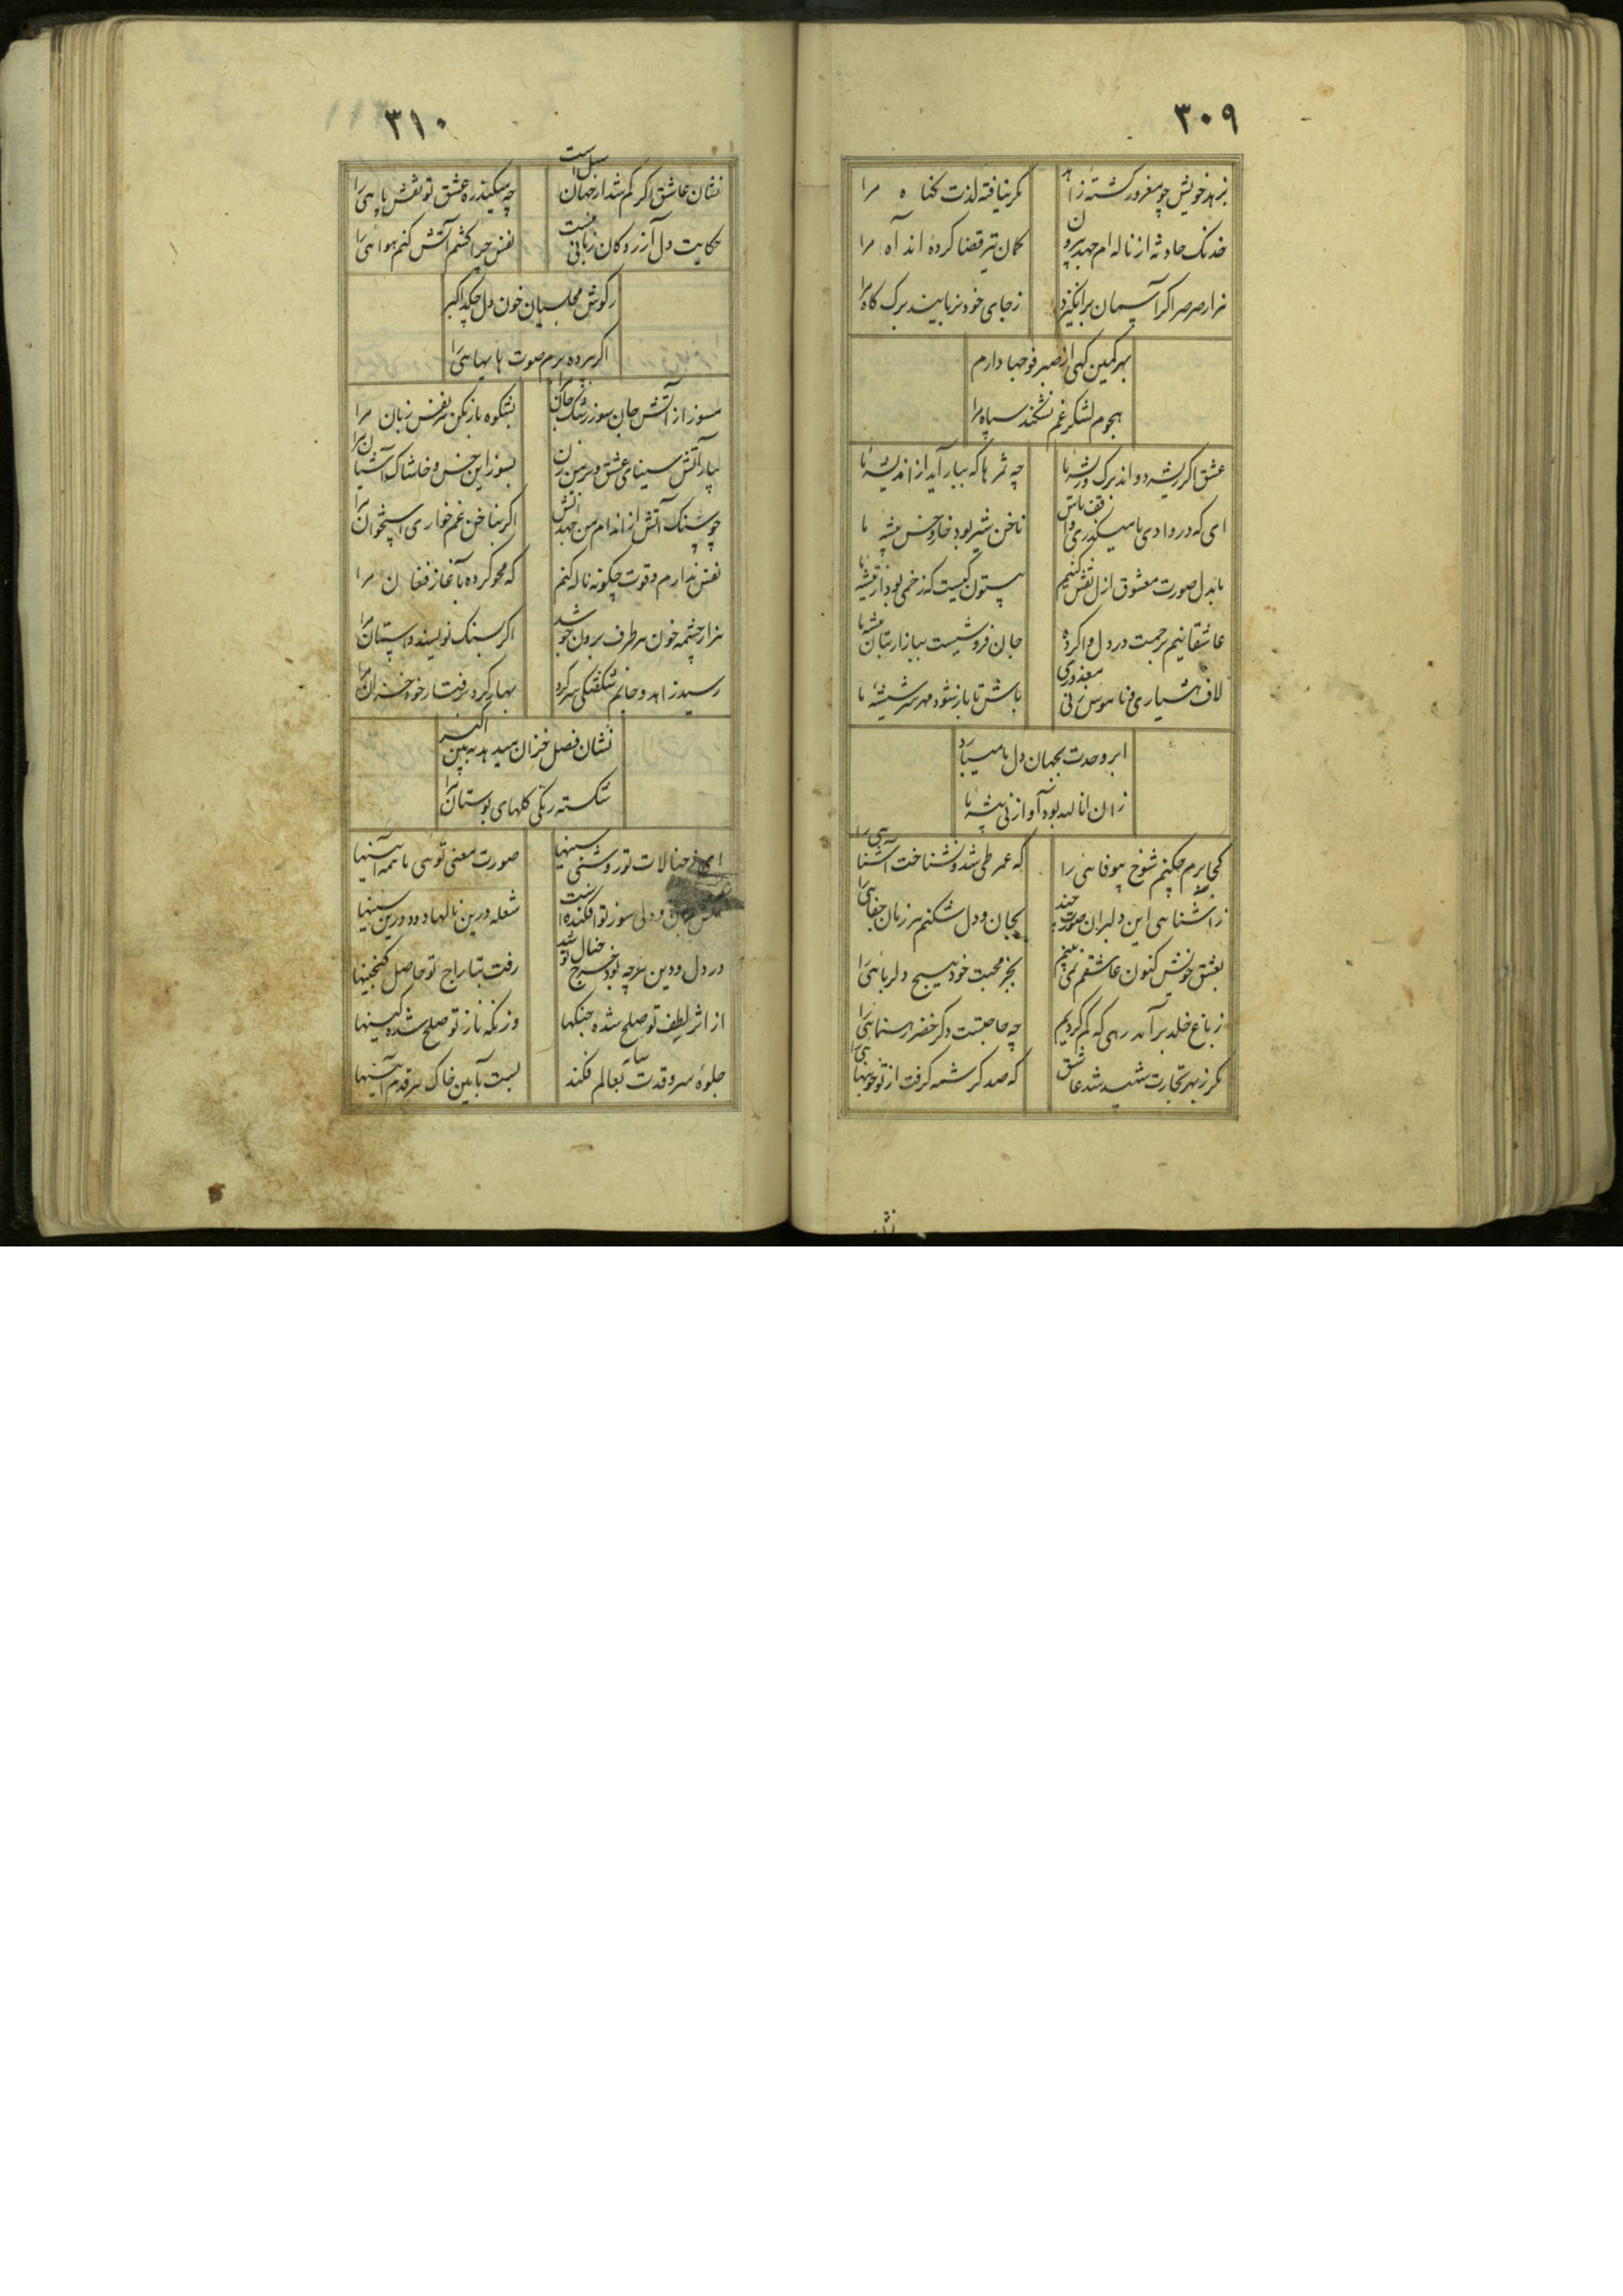 ٣٠٩
بزهد خویش چو مغرور کشتهٔ زاهد مکر نیافته لذت کناه مرا
خدنک حادثه از ناله ام جهد بیرون کمان تیر قضا کردهٔ اند آه مرا
هزار صرصر اکر آسمان برانکیزد ز جای خود نربایند برک کاه مرا
بهر کمین کهی از صبر فوجها دارم
هجوم لشکر غم نشکند سپاه مرا
عشق اکر ریشه دواند برک و ریشهٔ ما چه ثمرها که ببار آید از اندیشهٔ ما
ای که در وادی ما میکذری واقف باش ناخن شیر بود خار و خس بیشه ما
ما بدل صورت معشوق ازل نقش کنیم بیستون کیست که زخمی بود از تیشه ما
عاشقانیم برحمت در دل وا کرده جان فروشیست ببازار بتان پیشه ما
لاف هشیاری و ناموس زنی معذوری باش تا باز شود مهر سر شیشهٔ ما
ابر وحدت بجهان دل ما میبارد
زان انا لله بود آواز نی بیشهٔ ما
کجا برم چکنم شوخ بیوفائی را که عمر طی شد و نشناخت آشنائی را
ز آشنائی این دلبران صورت چند بجان و دل شکنم هر زمان جفائی را
بعشق خویش کنون عاشقم نمی بینم بجز محبت خود هیچ دلربائی را
ز باغ خلد برآمد رهی که کم کردیم چه حاجتست دکر خضر رهنمائی را
مکر ز بهر تجارت شهید شد عاشق که صد کرشمه کرفت از تو خونبهائی را
٣١٠
نشان عاشق اکر کم شد از جهان سهل است چه میکند ره عشق تو نقش پائی را
حکایت دل آزردکان زبانی نیست نفس چرا کشم آتش کنم هوائی را
ز کوش مجلسیان خون دل چکد اکبر
اکر برده برم صوت هایهائی را
مسوز از آتش جان سوز رشک جان مرا بشکوه باز مکن هر نفس زبان مرا
بیار آتش سینای عشق و بر من زن بسوز این خس و خاشاک آشیان مرا
چو سنک آتش از اندام من جهد آتش اکر بناخن غم خواری استخوان مرا
نفس ندارم و قوت چکونه ناله کنم که محو کرده ٔ آغاز فغان مرا
هزار چشمه خون هر طرف برون جوشد اکر بسنک نویسند داستان مرا
رسید زاهد و جانم شکفتکی سر کرد بهار کرد رفتار خود خزان مرا
نشان فصل خزان میدهد ببین اکبر
شکسته رنکی کلهای بوستان مرا
ای ز خیالات تو روشنی سینها صورت معنی توئی با همه آئینها
جان و دلی سوز تو افکنده است شعله درین نالها دود درین سینها
در دل و دین هرچه بود خرج خیال تو شد رفت بتاراج تو حاصل کنجینها
از اثر لطف تو صلح شده جنکها وز نکه ناز تو صلح شده کینها
جلوهٔ سرو قدت سایه بعالم فکند بست بآیین خاک هر قدم آئینها